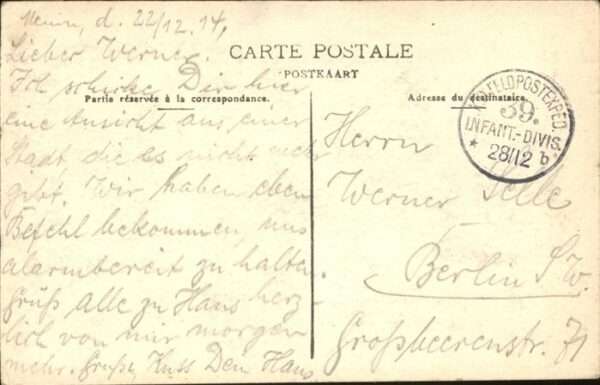 Menin, d. 22/12.14,
Lieber Werner.
Ich schicke Dir hier
eine Ansicht aus einer
Stadt die es nicht mehr
gibt. Wir haben eben
Befehl bekommen, uns
alarmbereit zu halten.
Grüß alle zu Haus herz-
lich von mir morgen
mehr. Gruß, Kuss Dein Hans
CARTE POSTALE
POSTKAART
Partie réservée à la correspondance.
Adresse du destinataire.
FELDPOSTEXPED.
39.
INFANT.-DIVIS.
* 28/12 b.
Herrn
Werner Selle
Berlin S.W.
Großbeerenstr. 71